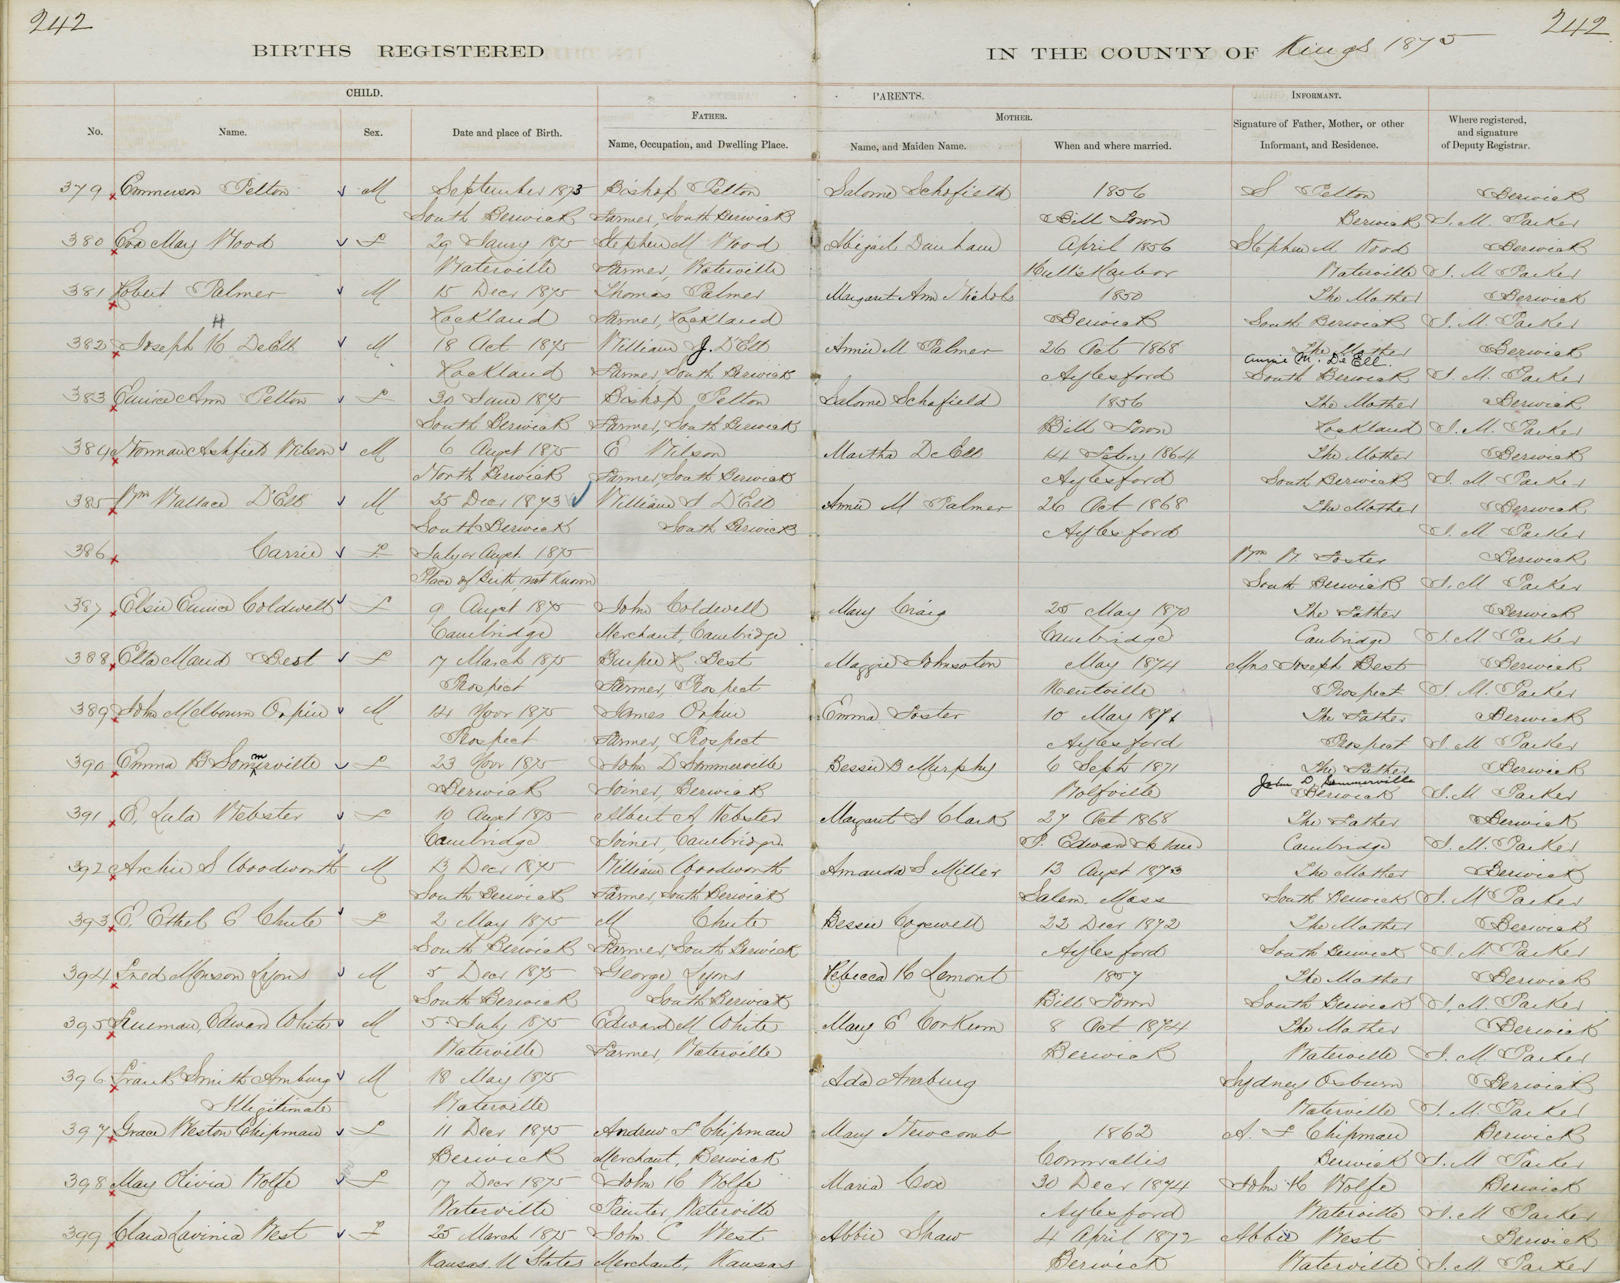 242
242
BIRTHS REGISTERED
IN THE COUNTY OF Kings 1875
CHILD.
PARENTS.
INFORMANT.
FATHER.
MOTHER.
No.
Name.
Sex.
Date and place of Birth.
Name, Occupation, and Dwelling Place.
Name, and Maiden Name.
When and where married.
Signature of Father, Mother, or other Informant, and Residence.
Where registered, and signature of Deputy Registrar.
379 Emmerson Pelton M September 1873 Bishop Pelton Salome Schofield 1856 S Pelton Berwick
South Berwick Farmer, South Berwick Bill Town Berwick S. M. Parker
380 Eva May Wood F 29 Jany 1875 Stephen M Wood Abigail Dunham April 1856 Stephen M Wood Berwick
Waterville Farmer, Waterville Halls Harbor Waterville S. M. Parker
381 Robert Palmer M 15 Decr 1875 Thomas Palmer Margaret Ann Nichols 1850 The Mother Berwick
Lockland Farmer, Lockland Berwick South Berwick S. M. Parker
H
382 Joseph H DeEll M 18 Oct 1875 William J. D'Ell Annie M Palmer 26 Oct 1868 The Mother Berwick
Annie M. De Ell.
Lockland Farmer, South Berwick Aylesford South Berwick S. M. Parker
383 Eunice Ann Pelton F 30 June 1875 Bishop Pelton Salome Schofield 1856 The Mother Berwick
South Berwick Farmer, South Berwick Bill Town Lockland S. M. Parker
384 Norman Ashfield Wilson M 6 Augst 1875 E Wilson Martha DeEll 14 Febry 1864 The Mother Berwick
North Berwick Farmer, South Berwick Aylesford South Berwick S. M. Parker
385 Wm Wallace D'Ell M 25 Decr 1873 William J D'Ell Annie M Palmer 26 Oct 1868 The Mother Berwick
South Berwick South Berwick Aylesford S. M. Parker
386 Carrie F July or Augst 1875 Wm W. Foster Berwick
Place of Birth not Known South Berwick S. M Parker
387 Elsie Eunice Coldwell F 9 Augst 1875 John Coldwell Mary Craig 25 May 1870 The Father Berwick
Cambridge Merchant, Cambridge Cambridge Cambridge S. M Parker
388 Ella Maud Best F 17 March 1875 Burpee Best Maggie Johnston May 1874 Mrs Joseph Best Berwick
Prospect Farmer, Prospect Kentville Prospect S. M. Parker
389 John Melbourn Orpin M 14 Novr 1875 James Orpin Emma Foster 10 May 1871 The Father Berwick
Prospect Farmer, Prospect Aylesford Prospect S. M Parker
390 Emma B Sommerville F 23 Novr 1875 John D Sommerville Bessie B Murphy 6 Sept 1871 The Father Berwick
John D. Sommerville
Berwick Joiner, Berwick Wolfville Berwick S. M Parker
391 E, Lula Webster F 10 Augst 1875 Albert A Webster Margaret J Clark 27 Oct 1868 The Father Berwick
Cambridge Joiner, Cambridge P. Edward Island Cambridge S. M. Parker
392 Archie S Woodworth M 13 Decr 1875 William Woodworth Amanda S Miller 13 Augst 1873 The Mother Berwick
South Berwick Farmer, South Berwick Salem, Mass South Berwick S. M. Parker
393 E. Ethel C Chute F 2 May 1875 M Chute Bessie Cogswell 22 Decr 1872 The Mother Berwick
South Berwick Farmer, South Berwick Aylesford South Berwick S. M. Parker
394 Fred Monson Lyons M 5 Decr 1875 George Lyons Rebecca H Lemont 1857 The Mother Berwick
South Berwick South Berwick Bill Town South Berwick S. M. Parker
395 Edward White M 5 July 1875 Edward M White Mary E Corkum 8 Oct 1874 The Mother Berwick
Waterville Farmer, Waterville Berwick Waterville S. M. Parker
396 Frank Smith Amburg M 18 May 1875 Ada Amburg Sydney Osburn Berwick
Illigitimate Waterville Waterville S. M. Parker
397 Grace Weston Chipman F 11 Decr 1875 Andrew F Chipman Mary Newcomb 1862 A. F Chipman Berwick
Berwick Merchant, Berwick Cornwallis Berwick S. M Parker
398 May Olivia Wolfe F 17 Decr 1875 John H Wolfe Maria Cox 30 Decr 1874 John H Wolfe Berwick
Waterville Painter, Waterville Aylesford Waterville S. M. Parker
399 Clara Lavinia West F 25 March 1875 John C West Abbie Shaw 4 April 1872 Abbie West Berwick
Kansas. U States Merchant, Kansas Berwick Waterville S. M. Parker